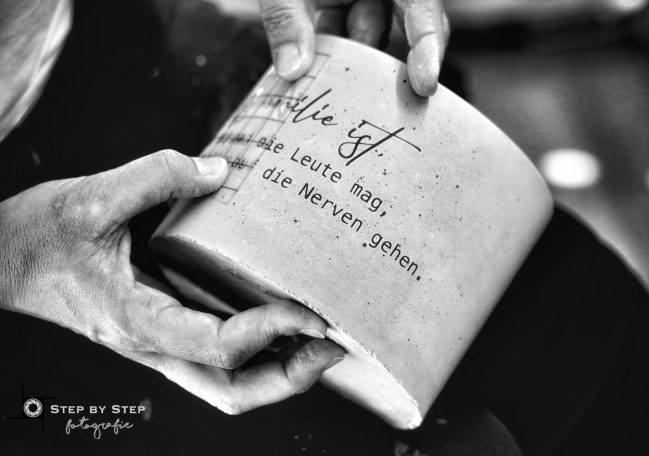 Familie ist
die Leute mag,
die Nerven gehen.
STEP BY STEP
fotografie